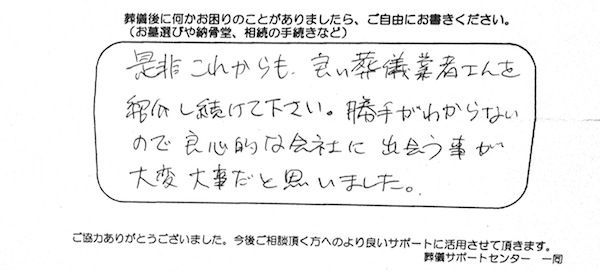 葬儀後に何かお困りのことがありましたら、ご自由にお書きください。
(お墓選びや納骨堂、相続の手続きなど)
是非これからも、良い葬儀業者さんを
紹介し続けて下さい。勝手がわからない
ので良心的な会社に出会う事が
大変大事だと思いました。
ご協力ありがとうございました。今後ご相談頂く方へのより良いサポートに活用させて頂きます。
葬儀サポートセンター 一同